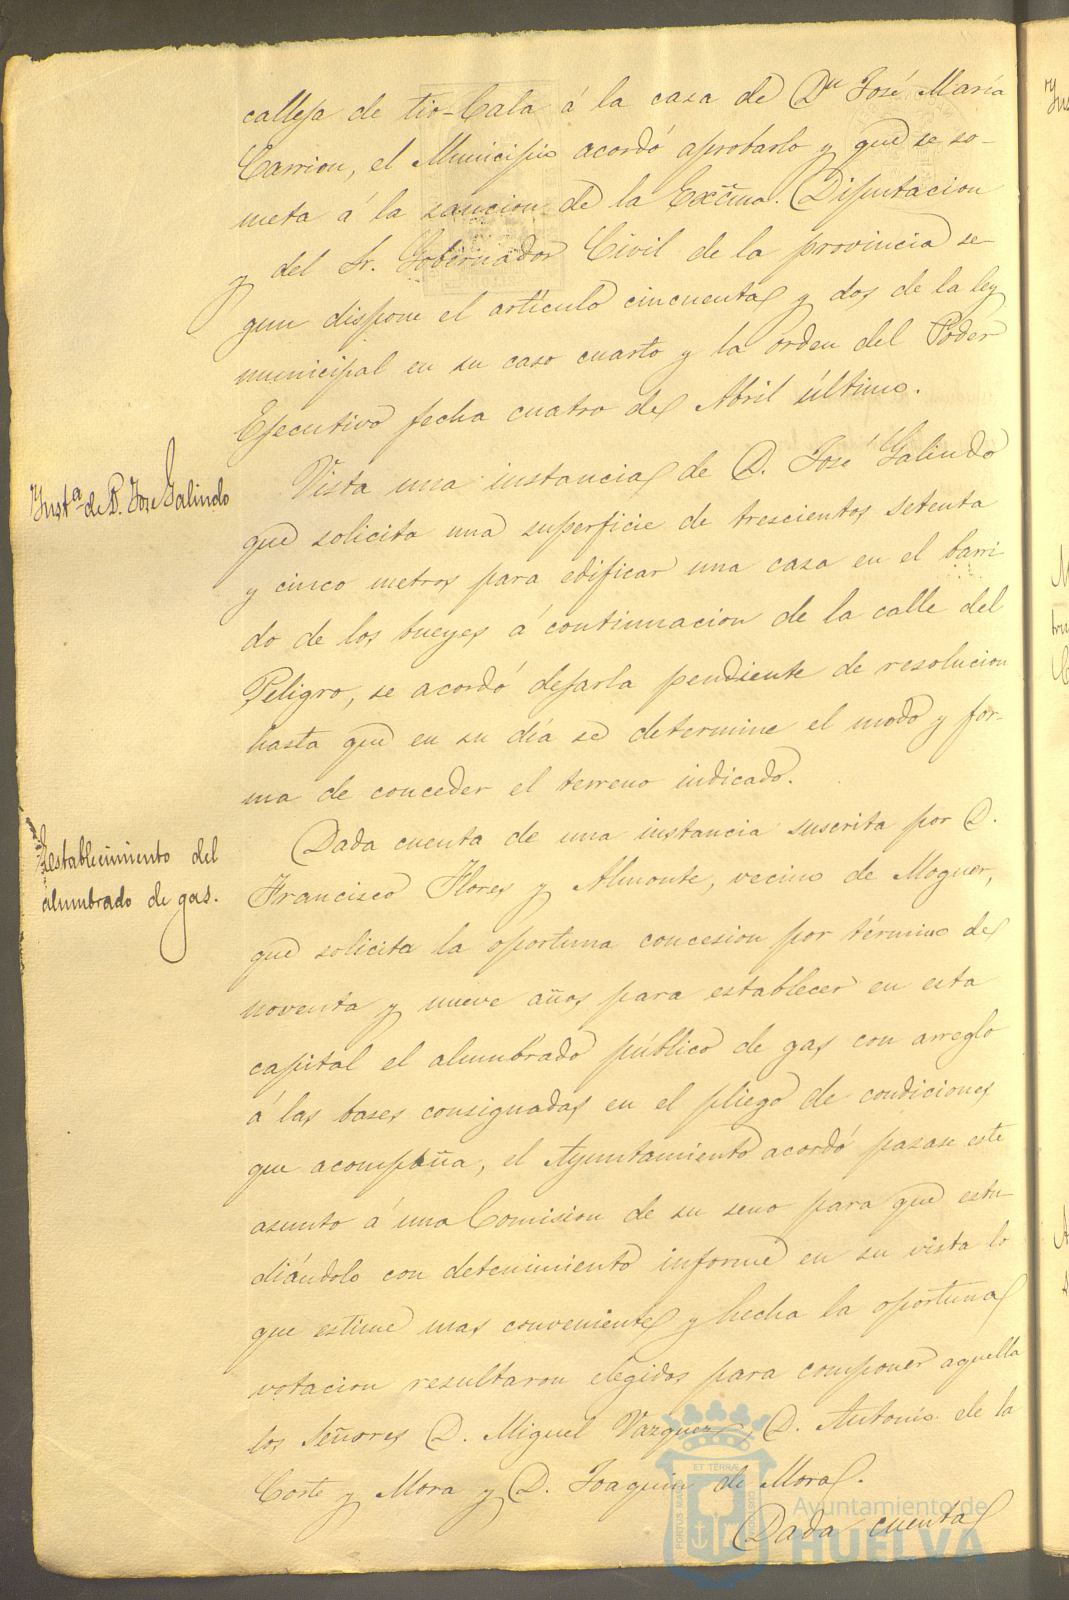 calleja de tio-Cala á la casa de Dn José María
Carrion, el Municipio acordó aprobarlo y que se so-
meta á la sancion de la Excma. Diputacion
y del Sr. Gobernador Civil de la provincia se-
gun dispone el artículo cincuenta y dos de la ley
municipal en su caso cuarto y la orden del Poder
Ejecutivo fecha cuatro de Abril último.
Inst.a de D. José Galindo
Vista una instancia de D. José Galindo
que solicita una superficie de trescientos setenta
y cinco metros para edificar una casa en el barri
do de los bueyes á continuacion de la calle del
Peligro, se acordó dejarla pendiente de resolucion
hasta que en su día se determine el modo y for-
ma de conceder el terreno indicado.
Establecimiento del
alumbrado de gas.
Dada cuenta de una instancia suscrita por D.
Francisco Flores y Almonte, vecino de Moguer,
que solicita la oportuna concesion por término de
noventa y nueve años para establecer en esta
capital el alumbrado público de gas con arreglo
á las bases consignadas en el pliego de condiciones
que acompaña, el Ayuntamiento acordó pasase este
asunto á una Comision de su seno para que estu-
diándolo con detenimiento informe en su vista lo
que estime mas conveniente y hecha la oportuna
votacion resultaron elegidos para componer aquella
los Señores D. Miguel Vazquez, D. Antonio de la
Corte y Mora y D. Joaquin de Mora.
Dada cuenta
PORTUS MARIS ET TERRÆ CUSTODIA
Ayuntamiento de
HUELVA